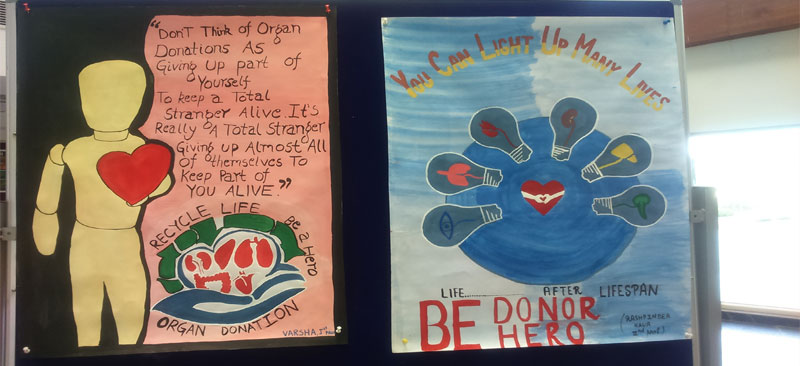 "Don't Think of Organ
Donations As
Giving Up part of
Yourself
To keep a Total
Stranger Alive. It's
Really A Total Stranger
Giving up Almost All
of themselves To
Keep Part of
YOU ALIVE."
RECYCLE LIFE
Be a Hero
ORGAN DONATION
VARSHA.
YOU CAN LIGHT UP MANY LIVES
LIFE............ AFTER LIFESPAN
BE DONOR
HERO